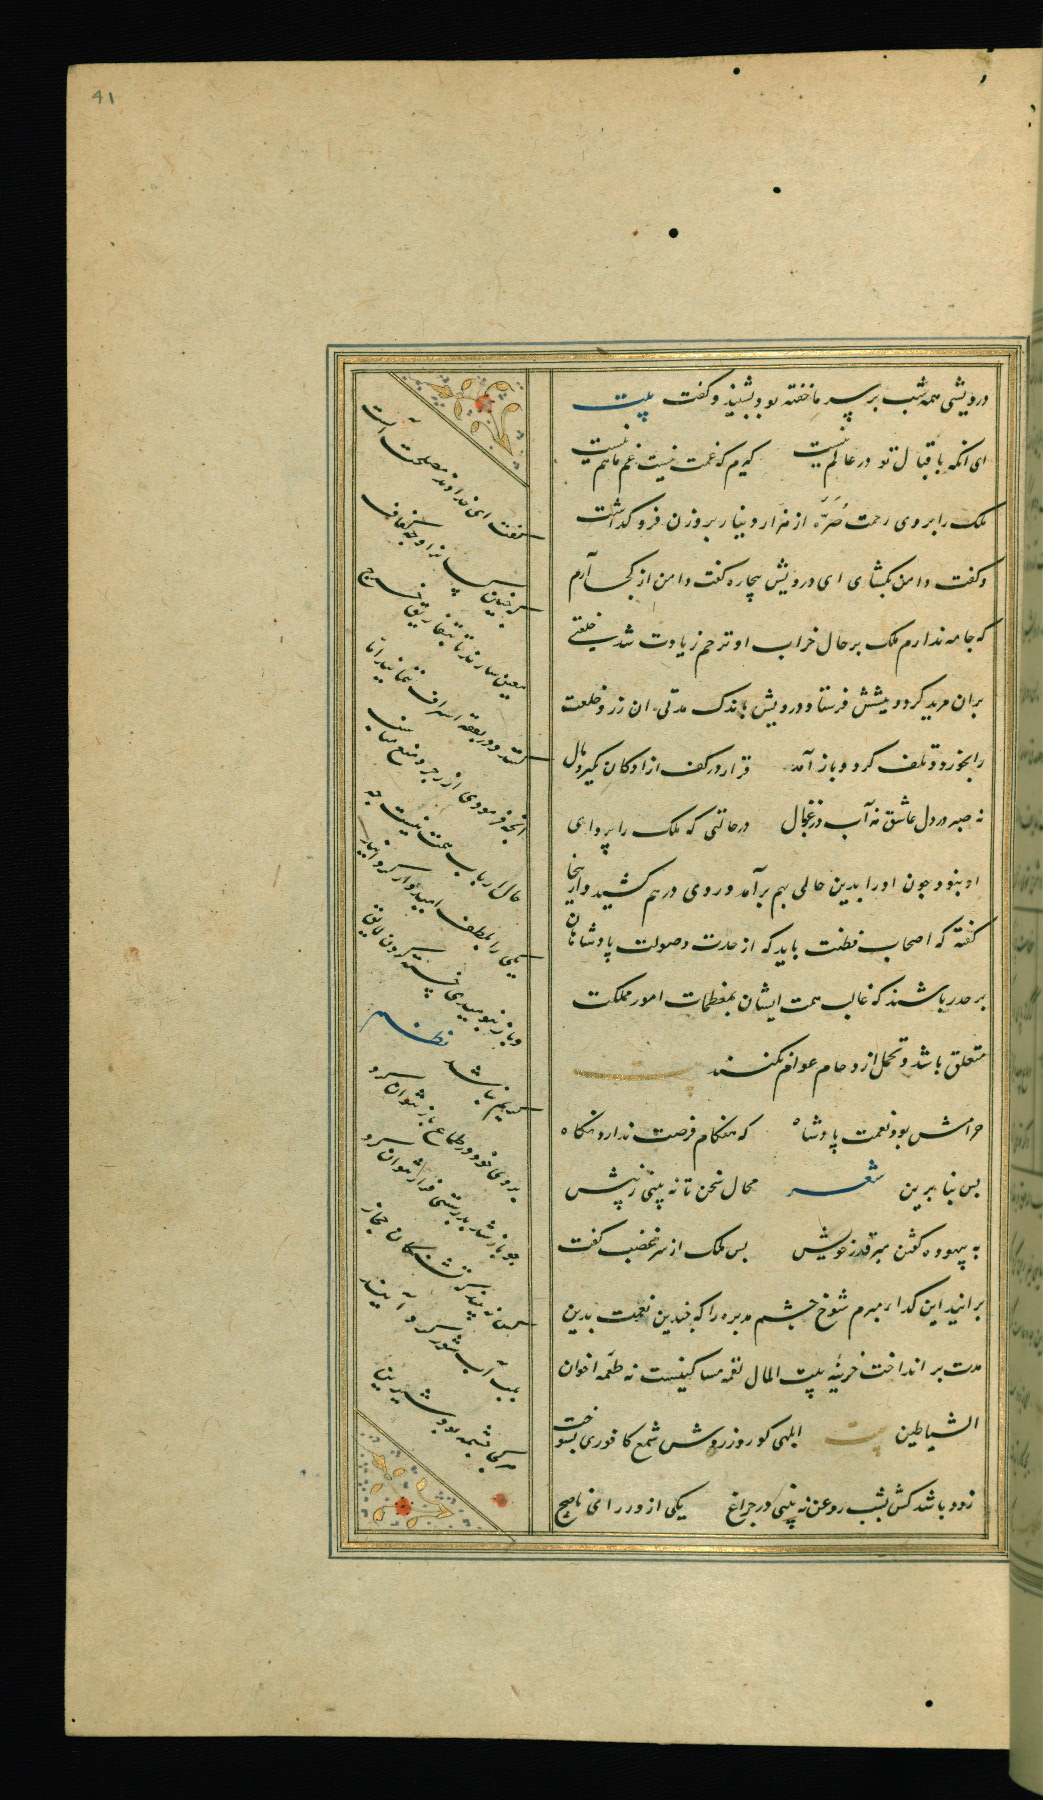 41
درویشی همه شب بر پسر ما خفته بود و بشنید و گفت بیت
ای آنکه باقبال تو در عالم نیست گیرم که غمت نیست غم ما هم نیست
ملک را بروی رحمت صُرَّه از هزار دینار بر وزن فرو گذاشت
و گفت دامن بگشای ای درویش بیچاره گفت دامن از کجا آرم
که جامه ندارم ملک بر حال خراب او ترحم زیادت شد خلعتی
بران مزید کرد و پیشش فرستاد درویش باندک مدتی ان زر و خلعت
را بخورد و تلف کرد و باز آمد قرار در کف ازادکان نگیرد مال
نه صبر در دل عاشق نه آب در غربال در حالتی که ملک را پروای
او نبود چون او را بدین حالی بهم برآمد و روی درهم کشید و از اینجا
گفته که اصحاب فطنت باید که از حدت و صولت پادشاهان
بر حذر باشند که غالب همت ایشان بمعظمات امور مملکت
متعلق باشد و تحمل ازدحام عوام نکنند بیت
حرامش بود نعمت پادشاه که هنگام فرصت ندارد نگاه
پس بنابرین شعر مجال سخن تا نه بینی ز پیش
به بیهوده گفتن مبر قدر خویش پس ملک از سر غضب گفت
برانید این گدای مبرم شوخ چشم مبذر را که چندین نعمت بدین
مدت بر انداخت خزینه بیت المال لقمه مساکینست نه طعمه اخوان
الشیاطین بیت ابلهی کو روز روشن شمع کافوری بسوخت
زود باشد کش بشب روغن نه بینی در چراغ یکی از وزرای ناصح
گفت ای خداوند مصلحت آنست
که چنین کسانرا وجه کفاف
معین دارند تا بتفاریق خرج
کنند و در نفقه اسراف ننمایند اما
آنچه فرمودی از زجر و منع مناسب
حال ارباب همت نیست چه
یکی را بلطف امیدوار کردانیدن
و باز بنومیدی خسته کردن لایق
کریم نباشد نظم
بروی خود در طماع باز نتوان کرد
چو باز شد بدرشتی فراز نتوان کرد
کس نه بیند که تشنکان حجاز
بلب آب شور گرد آیند
هر کجا چشمه بود شیرین